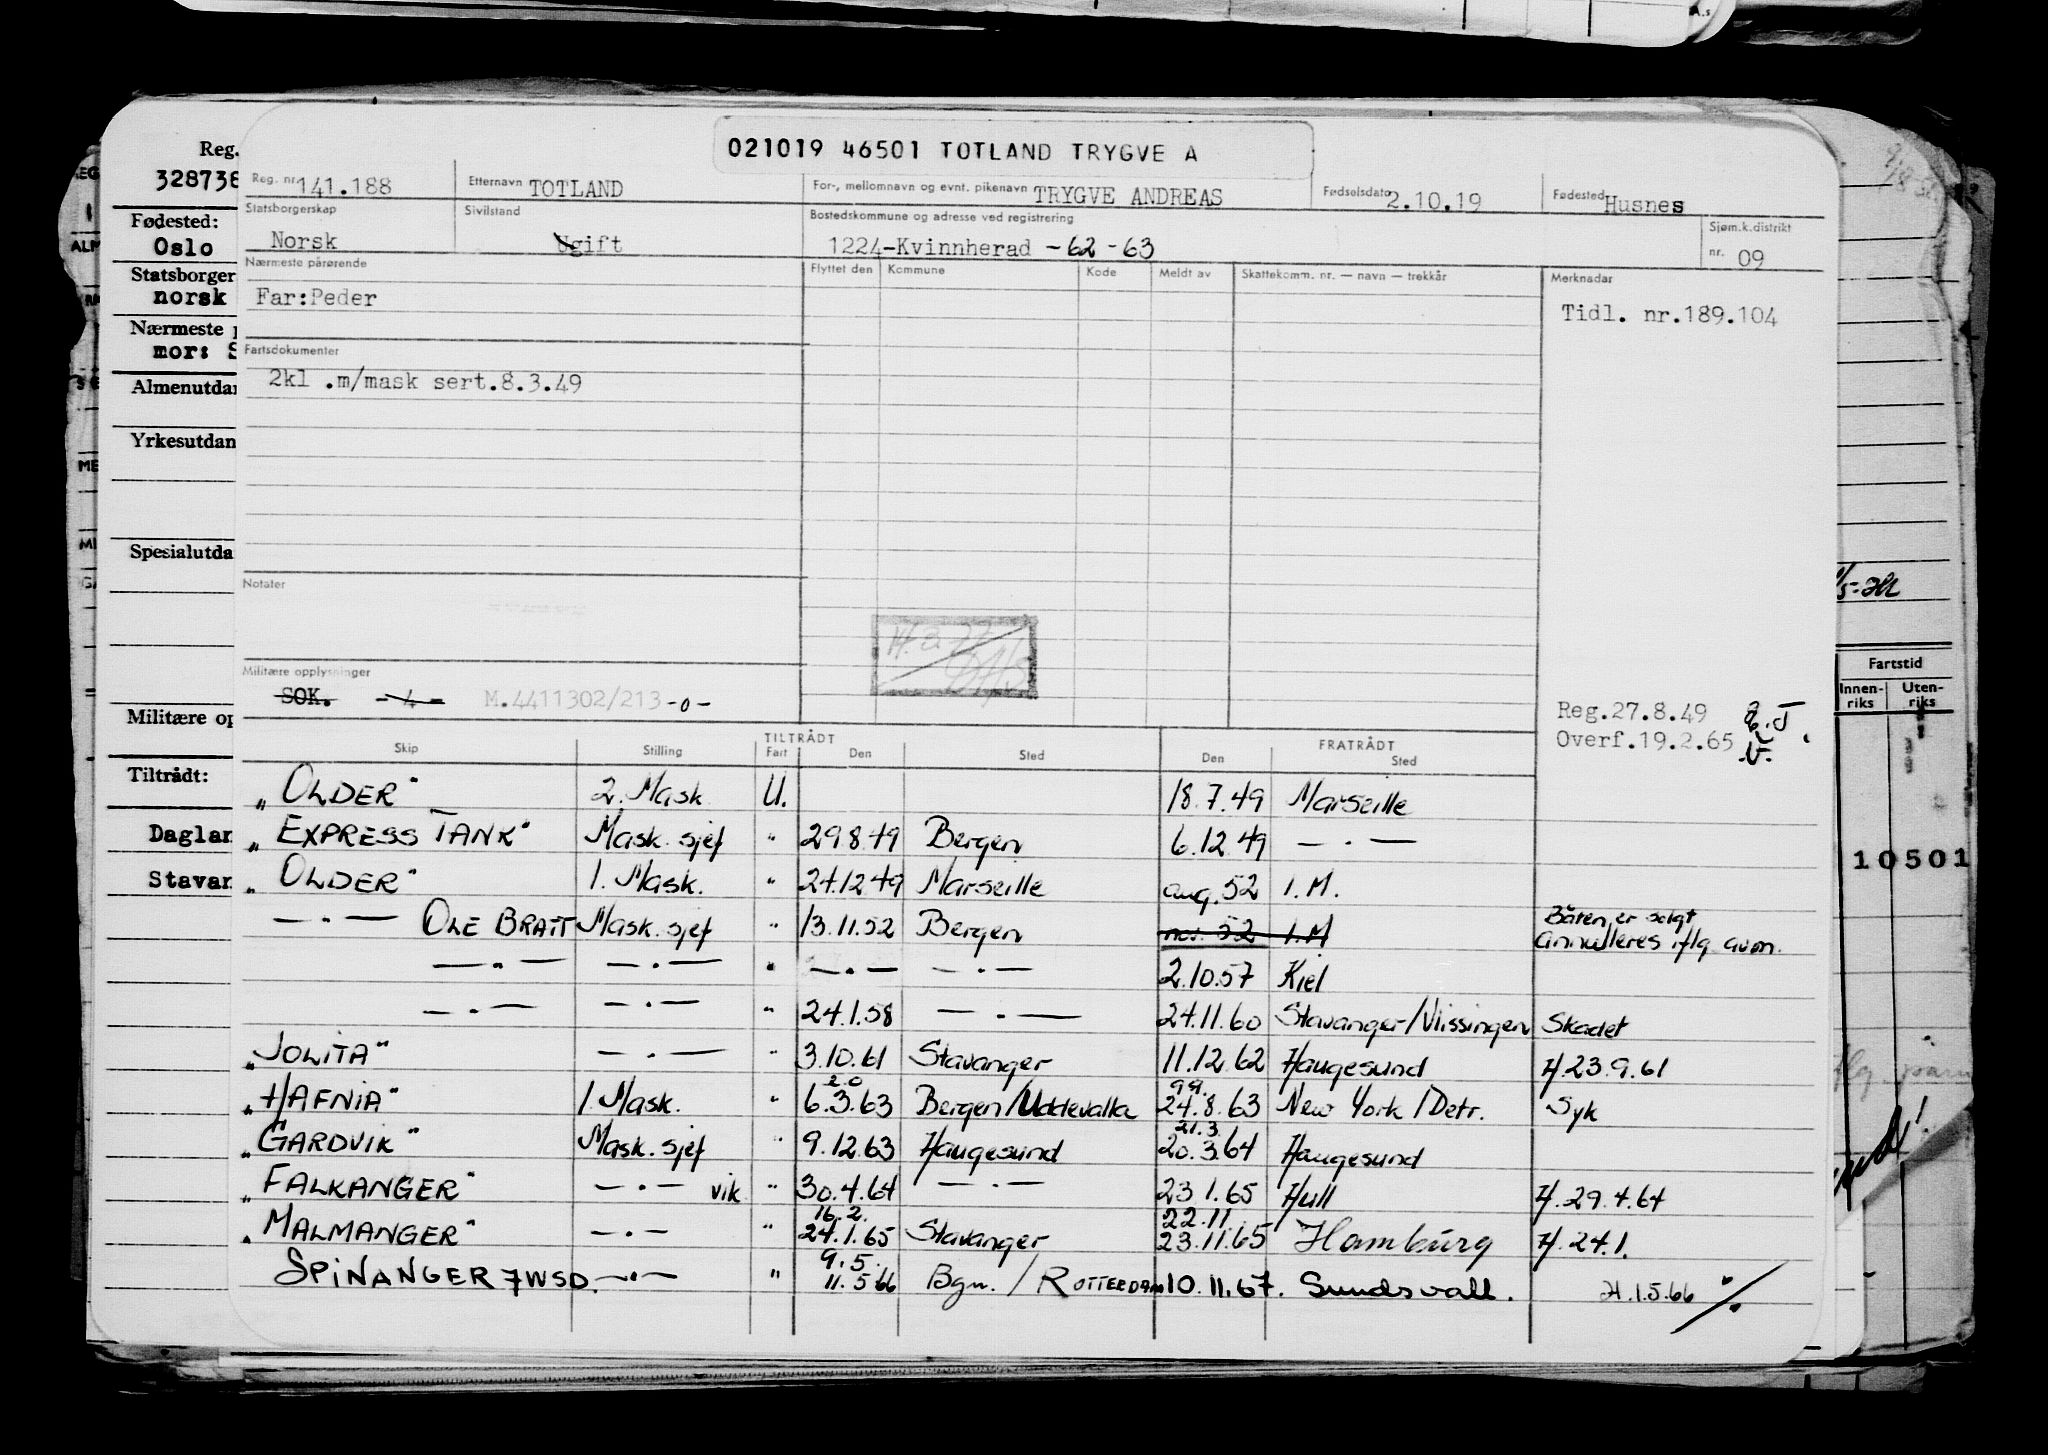 021019 46501 TOTLAND TRYGVE A
Reg. nr. 141.188 Etternavn TOTLAND For-, mellomnavn og evnt. pikenavn TRYGVE ANDREAS Fødselsdato 2.10.19 Fødested Husnes
Statsborgerskap Norsk Sivilstand Ugift Bostedskommune og adresse ved registrering 1224-Kvinnherad -62-63 Sjøm.k.distrikt nr. 09
Nærmeste pårørende Flyttet den Kommune Kode Meldt av Skattekomm. nr. — navn — trekkår Merknadar
Far:Peder Tidl. nr.189.104
Fartsdokumenter
2kl .m/mask sert.8.3.49
Notater
Militære opplysninger
SOK. -4- M.4411302/213 -0-
Reg.27.8.49
Overf.19.2.65
TILTRÅDT FRATRÅDT
Skip Stilling Fart Den Sted Den Sted
"OLDER" 2. Mask U. 18.7.49 Marseille
"EXPRESS TANK" Mask. sjef " 29.8.49 Bergen 6.12.49 — . —
"OLDER" 1. Mask. " 24.12.49 Marseille aug. 52 I.M.
— . — OLE BRATT Mask. sjef " 13.11.52 Bergen nov. 52 I.M Båten er solgt annulleres iflg avm.
— . — — . — " — . — — . — 2.10.57 Kiel
— . — — . — " 24.1.58 — . — 24.11.60 Stavanger/Vlissingen Skadet
"JOLITA" — . — " 3.10.61 Stavanger 11.12.62 Haugesund H.23.9.61
20 99.
"HAFNIA" 1. Mask. " 6.3.63 Bergen/Uddevalla 24.8.63 New York/Detr. Syk
21.3
"GARDVIK" Mask. sjef " 9.12.63 Haugesund 20.3.64 Haugesund
"FALKANGER" — . — vik " 30.4.64 — . — 23.1.65 Hull H.29.4.64
16.2. 22.11.
"MALMANGER" — . — " 24.1.65 Stavanger 23.11.65 Hamburg H.24.1.
9.5.
SPINANGER 7WSD. — . — " 11.5.66 Bgn. / ROTTERDAM 10.11.67. Sundsvall. H.1.5.66
Reg.
328738
Fødested:
Oslo
Statsborger
norsk
Nærmeste
mor: S
Almenutdan
Yrkesutdan
Spesialutda
Militære op
Tiltrådt:
Daglan
Stavan
Fartstid
Innen-riks Uten-riks
10501